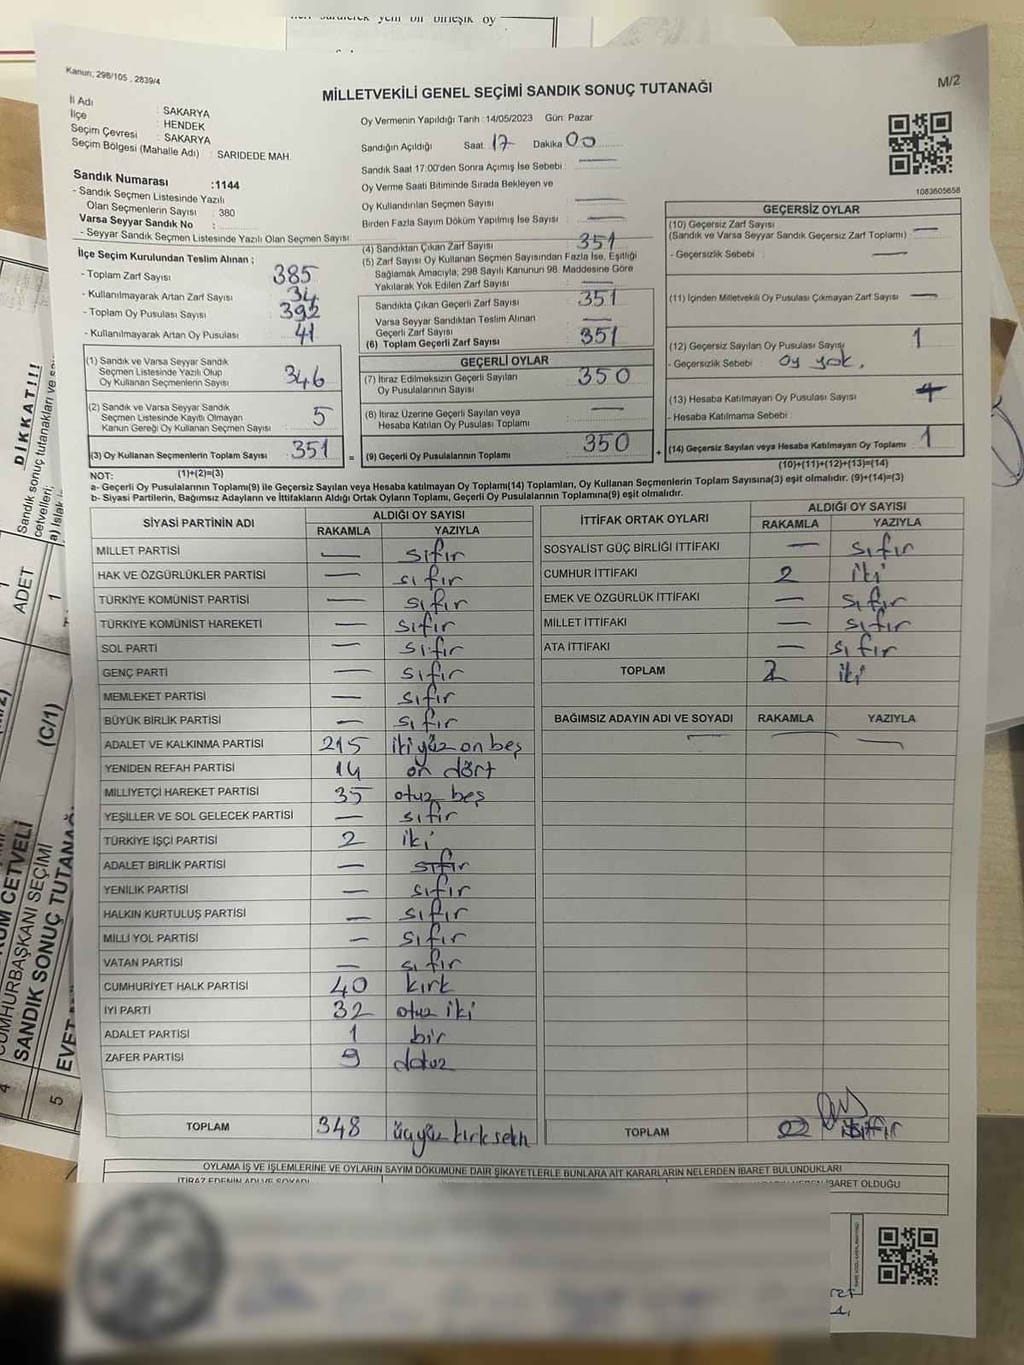 Kanun; 298/105 , 2839/4
MİLLETVEKİLİ GENEL SEÇİMİ SANDIK SONUÇ TUTANAĞI
M/2
İl Adı : SAKARYA
İlçe : HENDEK
Seçim Çevresi : SAKARYA
Seçim Bölgesi (Mahalle Adı) : SARIDEDE MAH.
Oy Vermenin Yapıldığı Tarih :14/05/2023 Gün: Pazar
Sandığın Açıldığı Saat: 17 Dakika 00
Sandık Saat 17:00'den Sonra Açımış İse Sebebi : —
Oy Verme Saati Bitiminde Sırada Bekleyen ve
Oy Kullandırılan Seçmen Sayısı —
Birden Fazla Sayım Döküm Yapılmış İse Sayısı —
1083605658
Sandık Numarası :1144
- Sandık Seçmen Listesinde Yazılı
Olan Seçmenlerin Sayısı : 380
Varsa Seyyar Sandık No :
- Seyyar Sandık Seçmen Listesinde Yazılı Olan Seçmen Sayısı
İlçe Seçim Kurulundan Teslim Alınan ;
- Toplam Zarf Sayısı 385
- Kullanılmayarak Artan Zarf Sayısı 34
- Toplam Oy Pusulası Sayısı 392
- Kullanılmayarak Artan Oy Pusulası 41
(1) Sandık ve Varsa Seyyar Sandık
Seçmen Listesinde Yazılı Olup
Oy Kullanan Seçmenlerin Sayısı 346
(2) Sandık ve Varsa Seyyar Sandık
Seçmen Listesinde Kayıtlı Olmayan
Kanun Gereği Oy Kullanan Seçmen Sayısı 5
(3) Oy Kullanan Seçmenlerin Toplam Sayısı 351
(1)+(2)=(3)
(4) Sandıktan Çıkan Zarf Sayısı 351
(5) Zarf Sayısı Oy Kullanan Seçmen Sayısından Fazla İse, Eşitliği
Sağlamak Amacıyla; 298 Sayılı Kanunun 98. Maddesine Göre
Yakılarak Yok Edilen Zarf Sayısı —
Sandıkta Çıkan Geçerli Zarf Sayısı 351
Varsa Seyyar Sandıktan Teslim Alınan
Geçerli Zarf Sayısı —
(6) Toplam Geçerli Zarf Sayısı 351
GEÇERLİ OYLAR
(7) İtiraz Edilmeksizin Geçerli Sayılan
Oy Pusulalarının Sayısı 350
(8) İtiraz Üzerine Geçerli Sayılan veya
Hesaba Katılan Oy Pusulası Toplamı —
= (9) Geçerli Oy Pusulalarının Toplamı 350
GEÇERSİZ OYLAR
(10) Geçersiz Zarf Sayısı
(Sandık ve Varsa Seyyar Sandık Geçersiz Zarf Toplamı) —
- Geçersizlik Sebebi : —
(11) İçinden Milletvekili Oy Pusulası Çıkmayan Zarf Sayısı —
(12) Geçersiz Sayılan Oy Pusulası Sayısı 1
- Geçersizlik Sebebi : Oy yok.
(13) Hesaba Katılmayan Oy Pusulası Sayısı
- Hesaba Katılmama Sebebi :
+ (14) Geçersiz Sayılan veya Hesaba Katılmayan Oy Toplamı 1
(10)+(11)+(12)+(13)=(14)
NOT:
a- Geçerli Oy Pusulalarının Toplamı(9) ile Geçersiz Sayılan veya Hesaba Katılmayan Oy Toplamı(14) Toplamları, Oy Kullanan Seçmenlerin Toplam Sayısına(3) eşit olmalıdır. (9)+(14)=(3)
b- Siyasi Partilerin, Bağımsız Adayların ve İttifakların Aldığı Ortak Oyların Toplamı, Geçerli Oy Pusulalarının Toplamına(9) eşit olmalıdır.
SİYASİ PARTİNİN ADI ALDIĞI OY SAYISI
RAKAMLA YAZIYLA
MİLLET PARTİSİ — sıfır
HAK VE ÖZGÜRLÜKLER PARTİSİ — sıfır
TÜRKİYE KOMÜNİST PARTİSİ — sıfır
TÜRKİYE KOMÜNİST HAREKETİ — sıfır
SOL PARTİ — sıfır
GENÇ PARTİ — sıfır
MEMLEKET PARTİSİ — sıfır
BÜYÜK BİRLİK PARTİSİ — sıfır
ADALET VE KALKINMA PARTİSİ 215 iki yüz on beş
YENİDEN REFAH PARTİSİ 14 on dört
MİLLİYETÇİ HAREKET PARTİSİ 35 otuz beş
YEŞİLLER VE SOL GELECEK PARTİSİ — sıfır
TÜRKİYE İŞÇİ PARTİSİ 2 iki
ADALET BİRLİK PARTİSİ — sıfır
YENİLİK PARTİSİ — sıfır
HALKIN KURTULUŞ PARTİSİ — sıfır
MİLLİ YOL PARTİSİ — sıfır
VATAN PARTİSİ — sıfır
CUMHURİYET HALK PARTİSİ 40 kırk
İYİ PARTİ 32 otuz iki
ADALET PARTİSİ 1 bir
ZAFER PARTİSİ 9 dokuz
TOPLAM 348
İTTİFAK ORTAK OYLARI ALDIĞI OY SAYISI
RAKAMLA YAZIYLA
SOSYALİST GÜÇ BİRLİĞİ İTTİFAKI — sıfır
CUMHUR İTTİFAKI 2 iki
EMEK VE ÖZGÜRLÜK İTTİFAKI — sıfır
MİLLET İTTİFAKI — sıfır
ATA İTTİFAKI — sıfır
TOPLAM 2 iki
BAĞIMSIZ ADAYIN ADI VE SOYADI RAKAMLA YAZIYLA
— — —
TOPLAM
OYLAMA İŞ VE İŞLEMLERİNE VE OYLARIN SAYIM DÖKÜMÜNE DAİR ŞİKAYETLERLE BUNLARA AİT KARARLARIN NELERDEN İBARET BULUNDUKLARI
İTİRAZ EDENİN ADI VE SOYADI
İBARET OLDUĞU
DİKKAT!!!
Sandık sonuç tutanakları ve
cetvelleri;
a) Islak
ADET
1
(C/1)
CETVELİ
CUMHURBAŞKANI SEÇİMİ
SANDIK SONUÇ TUTANAĞI
EVET
4
5